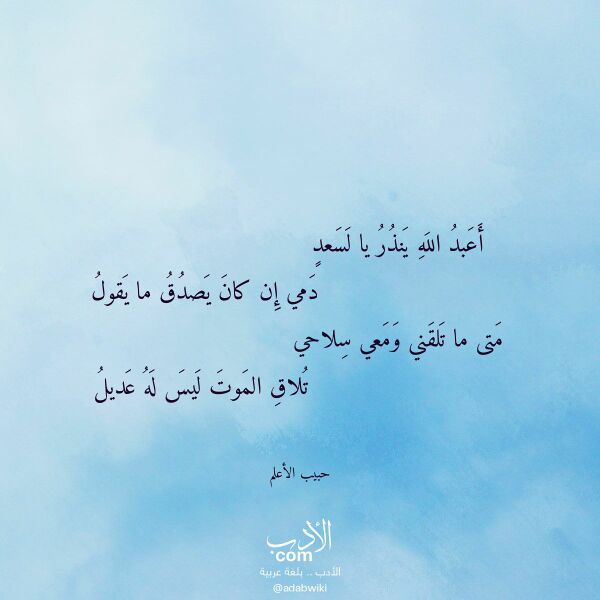 أَعَبدُ اللَهِ يَنذُرُ يا لَسَعدٍ
دَمي إِن كانَ يَصدُقُ ما يَقولُ
مَتى ما تَلقَني وَمَعي سِلاحي
تُلاقِ المَوتَ لَيسَ لَهُ عَديلُ
حبيب الأعلم
الأدب
com
الأدب .. بلغة عربية
@adabwiki